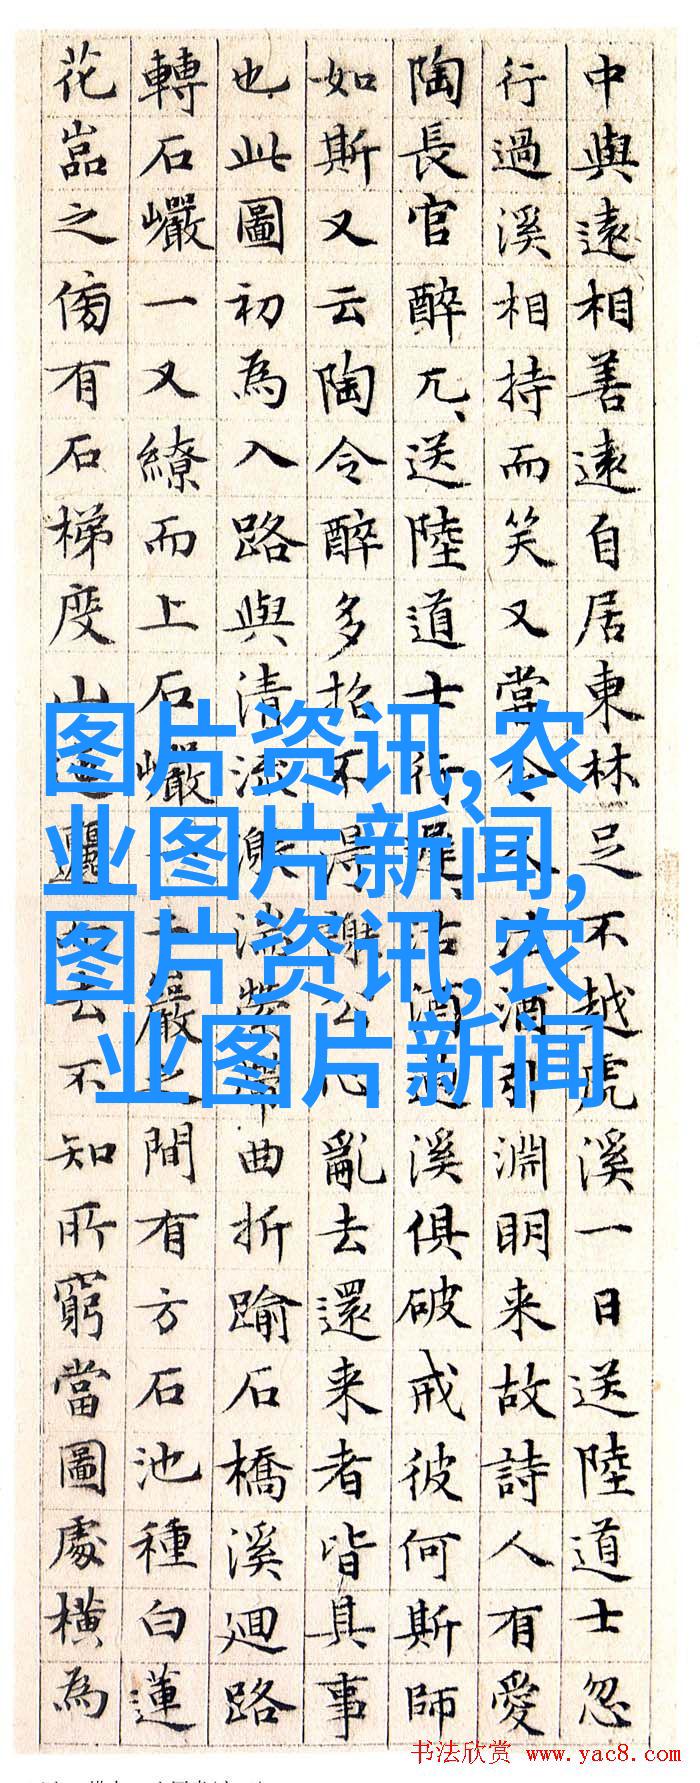 中與遠相善遠自居東林足不越虎溪一日送陸道士忽
行過溪相持而笑又當令人沽酒引淵明来故詩人有愛
陶長官醉兀、送陸道士行遲、沽酒過溪俱破戒彼何斯師
如斯又云陶令醉多招不得謝公心亂去還来者皆具事
也此圖初為入路與清流湍縈帶曲折踰石橋溪迴路
轉石巗一又繚而上石巗巖之間有方石池種白蓮
花嵓之傍有石梯度山去不知所窮當圖處橫為
图片资讯,农
业图片新闻,
图片资讯,农
业图片新闻
书法欣赏 www.yac8.com